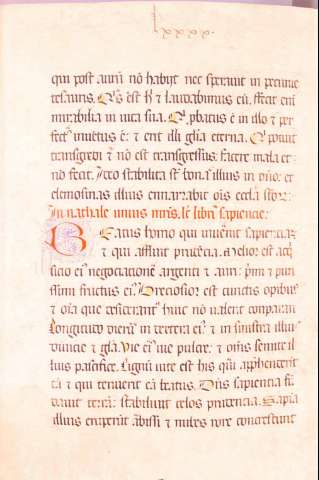 lxxxx.
qui post aurū nō habijt nec sperauit in pecunie
tesauris. Qͥs est hͥ ⁊ laudabimus eū, fecit eni
mirabilia in uita sua. Qͥ ꝓbatus ē in illo ⁊ per
fectꝰ inuētus ē: ⁊ erit illi gl̄ia eterna. Qͥ potuit
transgredi ⁊ nō est transgressus: facere mala et
nō fecit. Ideo stabilita sūt bona illius in dn̄o: et
elemosinas illius enarrabit oīs eccl̄a sc̄toꝝ:
In nathale unius mr̄is, lc̄ libri sapiencie:
Beatus homo qui inuenit sapienciaꝫ
⁊ qui affluit prudēcia. Melior est acq̄
sicio eiꝰ negociacione argenti ⁊ auri: pͥmi ⁊ puri
ssimi fructus eiꝰ. Preciosior est cunctis opibus
⁊ oīa que desiderantͬ huic nō ualent comparari
Longitudo dierū in dextera eiꝰ ⁊ in sinistra illiuꝰ
diuicie ⁊ gl̄a. Vie eiꝰ uie pulcre: ⁊ om̄s semite il
lius pacifice. Lignū uite est his qui apphenderīt
eā ⁊ qui tenuerit eā beatus. Dn̄s sapientia fū
dauit terrā: stabiliuit celos prudencia. Sapīa
illius eruperūt abissi ⁊ nubes rore concrescunt